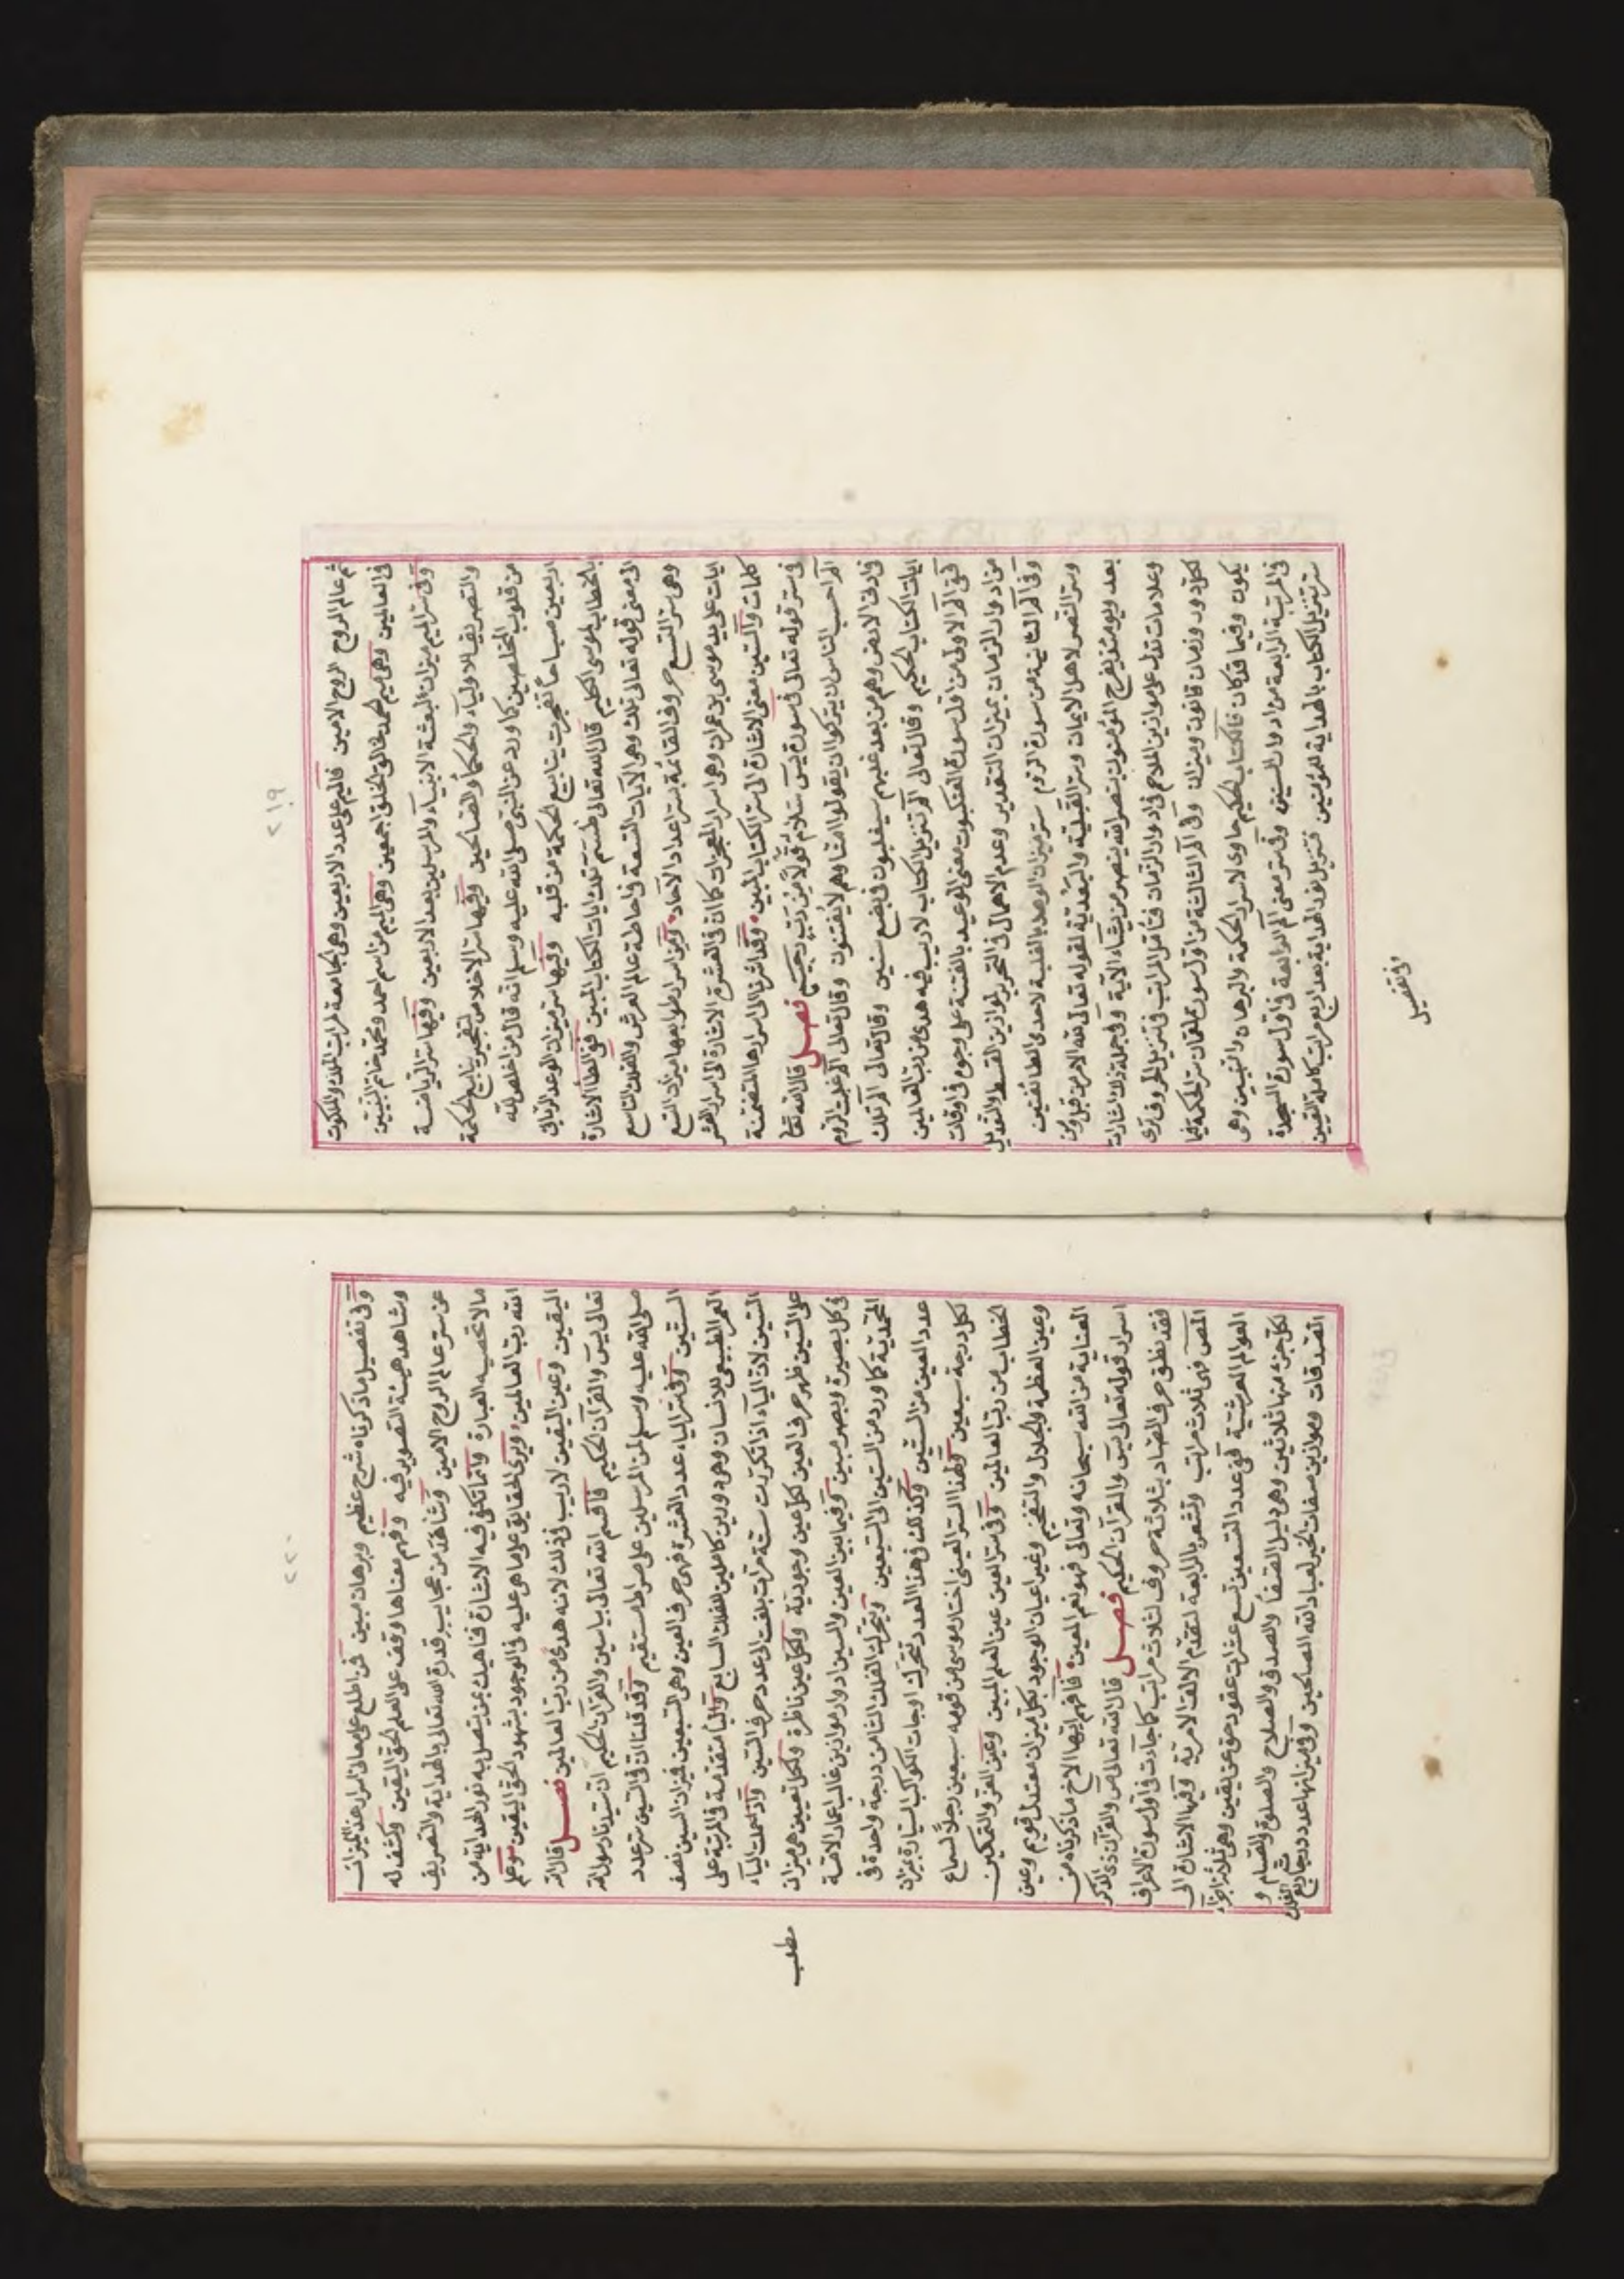 ٢١٩
ثم عالم الروح الروح الامين فالميم على عدد الاربعين وهى جامعة لمراتب الملك والملكوت
فى العالمين وهى ميم الحمد لخالق الخلق اجمعين وهى الميم من اسم احمد ومحمد خاتم النبيين
وفى سر الميم ميزان البعثة الانبياء والمرسلين بعد الاربعين وفيها سر الرياضة
والتصريف الاولياء والحكماء والصالحين وفيها سر الاخلاص لتفجير ينابيع الحكمة
من قلوب المخلصين كما ورد عن النبى صلى الله عليه وسلم انه قال من اخلص لله
اربعين صباحا تفجرت ينابيع الحكمة من قلبه وفيها سر ميزان الوعد الربانى
بالخطاب لموسى الكليم قال الله تعالى طسم تلك ايات الكتاب المبين ففى الطا الاشارة
الى معنى قوله تعالى تلك وهى الايات التسعة فى احاطة عالم العرش والفلك التاسع
وهى سر التسع حروف القائمة بسر اعداد الاحاد ومن اسرار طوابعها ميزان التسع
ايات على يد موسى بن عمران وهى اسرار المعجزات كما ان فى العشرة الاشارة الى اسرار العشر
كلمات والستين معنى الاشارة الى سر الكتاب المبين وقد اشرنا الى اسرارها المتضمنة
فى سر قوله تعالى فى سورة يس سلام قولا من رب رحيم فصل قال الله تعا
الم احسب الناس ان يتركوا ان يقولوا امنا وهم لا يفتنون وقال تعالى الم غلبت الروم
فى ادنى الارض وهم من بعد غلبهم سيغلبون فى بضع سنين وقال تعالى الم تلك
ايات الكتاب الحكيم وقال تعالى الم تنزيل الكتاب لا ريب فيه هدى من رب العالمين
ففى الم الاولى من اول سورة العنكبوت معنى الوعيد بالفتنة على وجوه فى اوقات
من ادوار الزمان بميزان التقدير وعدم الاهمال فى التحرير لموازين القسط والتعديل
وفى الم الثانية من سورة الروم سر ميزان الوعد بالغلبة لاحدى الطائفتين
وسر النصر لاهل الايمان وسر القبلية والبعدية لقوله تعالى لله الامر من قبل ومن
بعد ويومئذ يفرح المؤمنون بنصر الله ينصر من يشاء الاية وفى جملة ذلك اشارات
وعلامات تدل على موازين الملاحم فى ادوار الزمان فتأمل المراتب فى تنزيل الحروف ترى
لكل دور وزمان قانون وميزان وفى الم الثالثة من اول سورة لقمان سر الحكمة فيما
يكون وفيما قد كان فالكتاب الحكيم حاوى لاسرار الحكمة والبرهان والتبيين وهى
فى المرتبة الرابعة من ادوار السنين وفى سر معنى الم الرابعة فى اول سورة السجدة
سر تنزيل الكتاب بالهداية للمؤمنين فتنزيل نور الهداية بعد اربع مراتب كاملة اليقين
وفى تفصيل
٢٢٠
وفى تفصيل ما ذكرناه شرح عظيم وبرهان مبين فمن اطلع على معانى اسرار هذ الميزان
وشاهد هيئة التصوير فيه وفهم معناها وقف على العلم الحق اليقين وكشف له
عن سر عالم الروح الامين وشاهد من عجايب قدرة الله تعالى بالهداية والتصريف
ما لا تحصيه العبارة وانما تكفى فيه الاشارة فناهيك بمن يتصل به نور الهداية من
الله رب العالمين ويرى الحقايق على ما هى عليه فى الوجود بشهود الحق اليقين وعلم
اليقين وعين اليقين لا ريب فى ذلك لانه هدى من رب العالمين فصل قال الله
تعالى يس والقرآن الحكيم فاقسم الله تعالى بياسين والقرآن الحكيم ان سيدنا رسول الله
صلى الله عليه وسلم لمن المرسلين على صراط مستقيم وقد قلنا ان فى السين سر عدد
الستين وفى سر الياء عدد العشرة فهى حرف العين وهى السبعين فميزان السين نصف
العمر الطبيعى للانسان وهى دورين كاملين للفلك السابع والياء متقدمة فى المرتبة على
السين لان الياء اذا تكررت ستة مراتب بلغت الى عدد حرف السين واذا حملت الياء
على السين ظهر حرف العين لكل عين وجودية ولكل عين ناظرة ولكل تعيين هى ميزان
فى كل بصيرة وبصر مبين وفيما بين العين والسين ادوار موازين غالب اعمار الامة
المحمدية كما ورد من الستين الى السبعين وتحرك الفلك الثامن درجة واحدة فى
عدد العين من السنين وكذلك فى هذا العدد تتحرك اوجات الكواكب السيارة بميزان
لكل درجة سبعين ولهذا السر العينى اختار موسى من قومه سبعين رجلا لسماع
الخطاب من رب العالمين وفى سر العين عين العلم المبين وعين العز والتمكين
وعين العظمة والجلال والتفخيم وغير اعيان الوجود بكل ميزان معتدل قويم وعين
العناية من الله سبحانه وتعالى فهو نعم المعين فافهم ايها الاخ ما ذكرناه من
اسرار قوله تعالى يس والقرآن الحكيم فصل قال الله تعالى ص والقرآن ذى الذكر
فقد نطق حرف الصاد بثلاثة حروف لثلاث مراتب كما جاءت فى اول سورة الاعراف
المص فهى ثلاث مراتب وتشعر بالرابعة لتقدم الالف الامرية وفيها الاشارة الى
العوالم العرشية ففى عدد التسعين تسع عشرات عقود حق عن يقين وهى ثلاثة اجزاء
لكل جزء منها ثلاثين وهى دليل الصفا والصدق والصلاح والصلوة والصيام و
الصدقات وموازين صفات الخير لعباد الله الصالحين وفى ميزانها عدد درجات ربع الفلك
مطلب